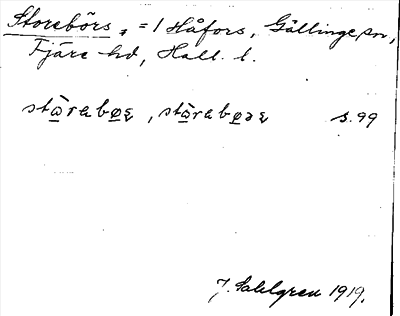 Storebörs, =/ Håfors, Gällinge sn,
Fjäre hd, Hall. l.
stò̤rabø̤ʂ, stò̤rabø̤əʂ s. 99
J. Sahlgren 1919.